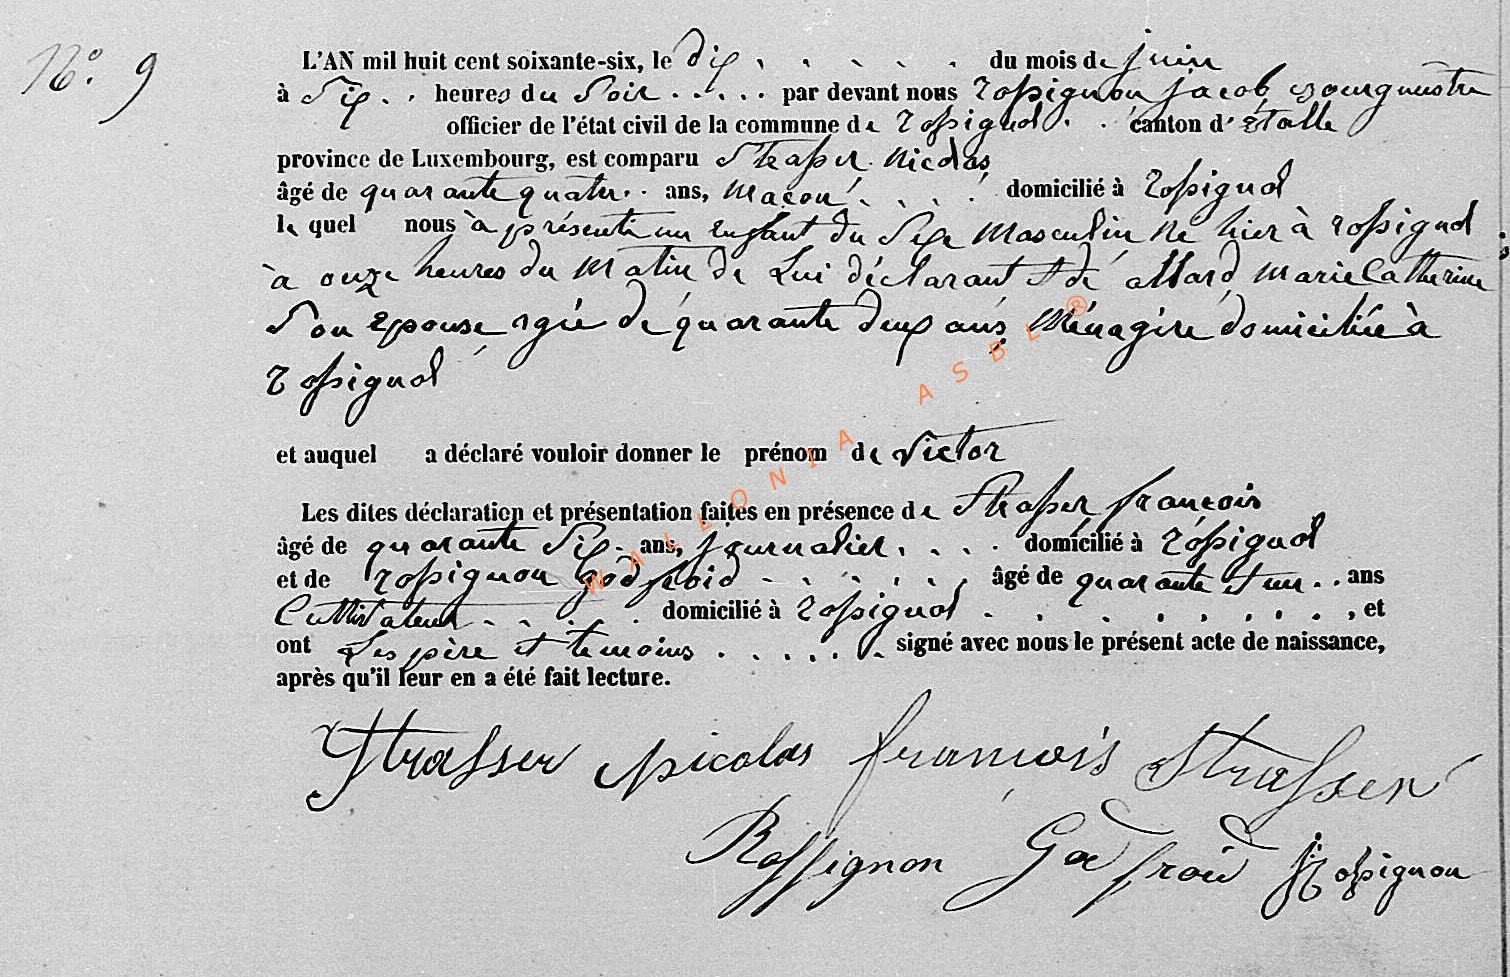 N° 9
L'AN mil huit cent soixante-six, le dix . . . . . du mois de juin
à Six . . heures du Soir . . . . . par devant nous Rossignon jacob Bourgmestre
officier de l'état civil de la commune de Rossignol . . canton d'Etalle
province de Luxembourg, est comparu Strasser nicolas
âgé de quarante quatre . . ans, maçon . . . . domicilié à Rossignol
le quel nous à présenté un enfant du Sexe masculin né hier à rossignol
à onze heures du matin de Lui déclarant et de allard marie Catherine
Son Epouse agée de quarante deux ans ménagère domiciliée à
rossignol
et auquel a déclaré vouloir donner le prénom de victor
Les dites déclaration et présentation faites en présence de Strasser françois
âgé de quarante Six . ans, journalier . . . . domicilié à rossignol
et de rossignon Godfroid . . . . . . âgé de quarante et un . . ans
Cultivateur . . . . . domicilié à rossignol . . . . . . . . . , et
ont Les père et temoins . . . . . . signé avec nous le présent acte de naissance,
après qu'il leur en a été fait lecture.
Strasser Nicolas françois Strasser
Rossignon Godfroid J Rossignon
WALLONIA ASBL ®